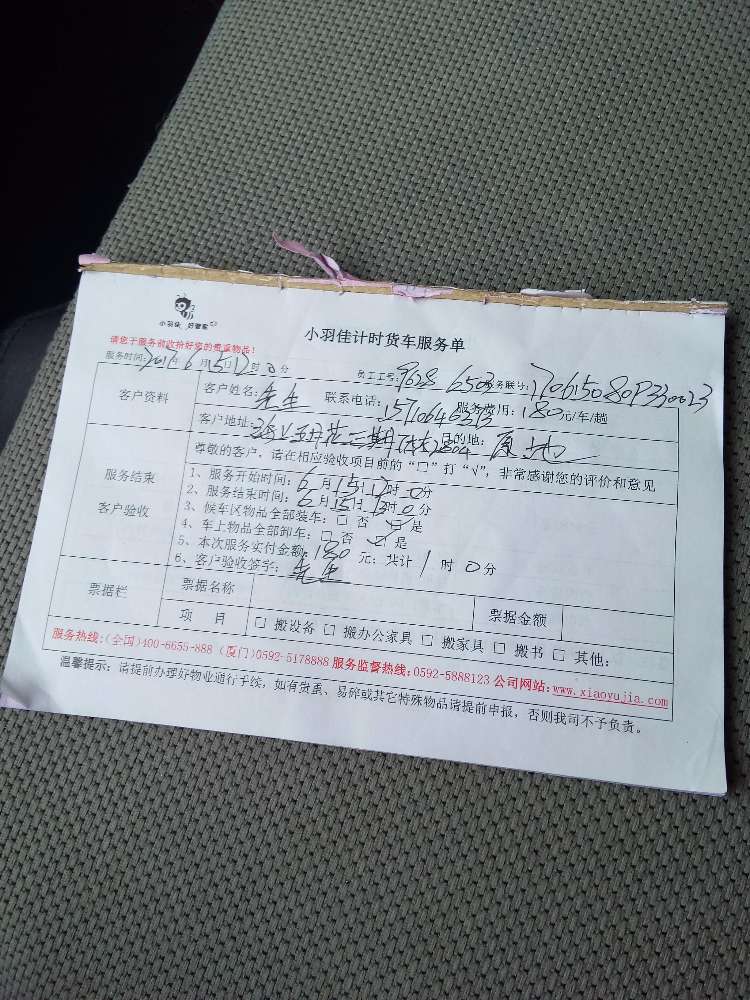 小羽佳 好管家
小羽佳计时货车服务单
请您于服务前收拾好您的贵重物品!
服务时间: 2017年6月15日12时0分
员工工号: 9628 6503 服务联计: 170615080P330023
客户资料 客户姓名: 先生 联系电话: 服务费用: 180元/车/趟
客户地址: 目的地: 原地
尊敬的客户, 请在相应验收项目前的“□”打“√”, 非常感谢您的评价和意见
服务结束
客户验收
1、服务开始时间: 6月15日12时0分
2、服务结束时间: 6月15日13时0分
3、候车区物品全部装车: □ 否 ☑ 是
4、车上物品全部卸车: □ 否 ☑ 是
5、本次服务实付金额: 180 元; 共计 1 时 0 分
6、客户验收签字: 先生
票据栏 票据名称 票据金额
项 目 □ 搬设备 □ 搬办公家具 □ 搬家具 □ 搬书 □ 其他:
服务热线:(全国)400-6655-888 (厦门)0592-5178888 服务监督热线: 0592-5888123 公司网站: www.xiaoyujia.com
温馨提示: 请提前办理好物业通行手续, 如有贵重、易碎或其它特殊物品请提前申报, 否则我司不予负责。